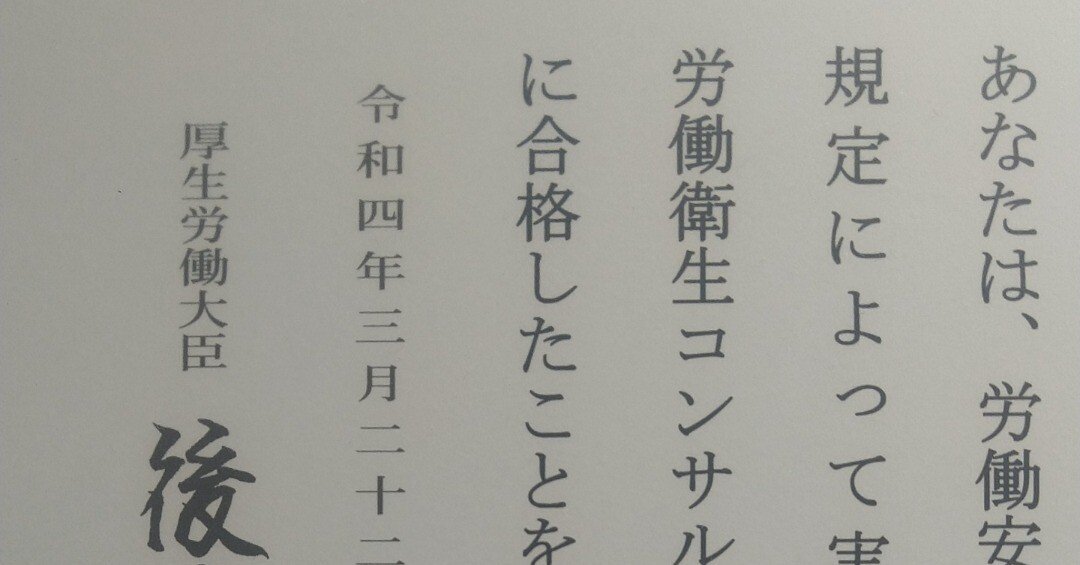 あなたは、労働安
規定によって実
労働衛生コンサル
に合格したことを
令和四年三月二十二
厚生労働大臣 後